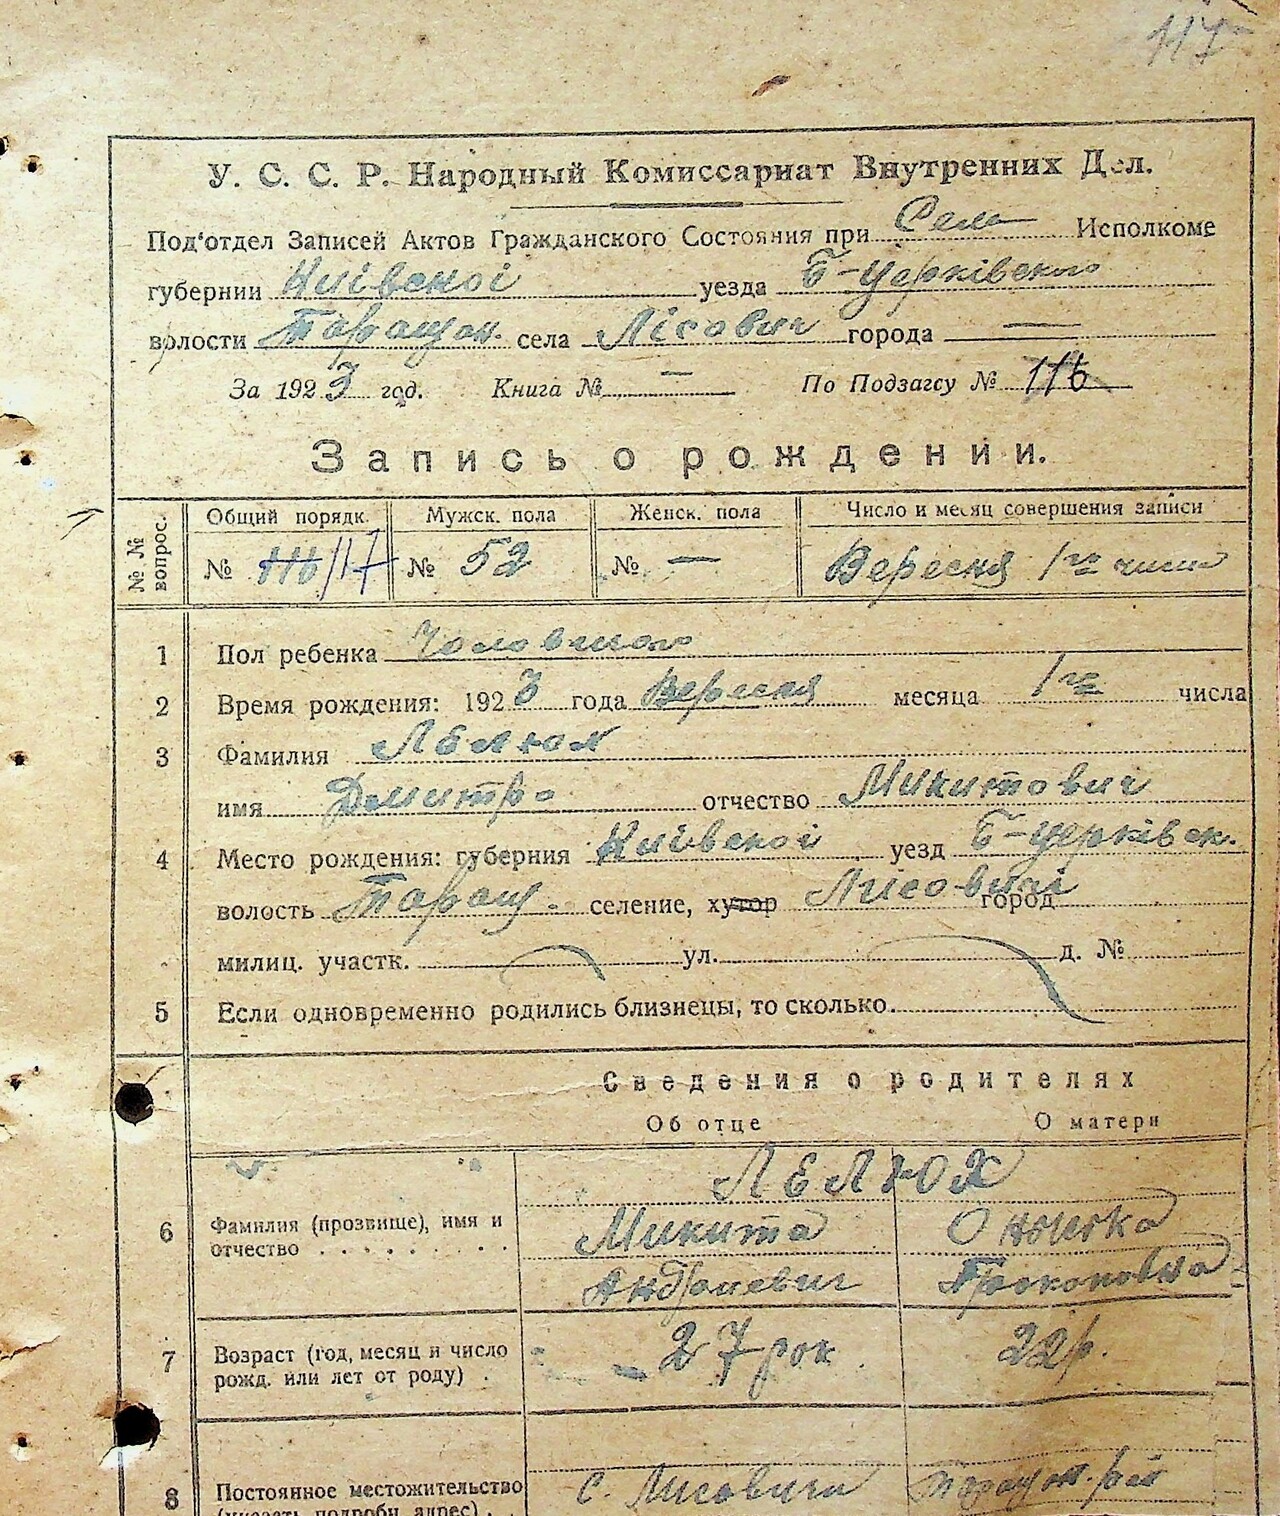 117
У. С. С. Р. Народный Комиссариат Внутренних Дел.
Под'отдел Записей Актов Гражданского Состояния при Сель Исполкоме
губернии Київської уезда Б-Церківського
волости Таращан. села Лісович города —
За 1923 год. Книга № — По Подзагсу № 116
Запись о рождении.
№ № вопрос. Общий порядк. Мужск. пола Женск. пола Число и месяц совершения записи
№ 116/117 № 52 № — Вересня 1го числа
1 Пол ребенка Чоловичого
2 Время рождения: 1923 года Вересня месяца 1го числа
3 Фамилия Лелюх
имя Дмитро отчество Микитович
4 Место рождения: губерния Київської уезд Б-Церківськ.
волость Таращ. селение, хутор Лісовичі город
милиц. участк. ул. д. №
5 Если одновременно родились близнецы, то сколько
Сведения о родителях
Об отце О матери
ЛЕЛЮХ
6 Фамилия (прозвище), имя и Микита Оныська
отчество Андрієвич Прокоповна
7 Возраст (год, месяц и число 27 рок 22 р.
рожд. или лет от роду)
8 Постоянное местожительство с. Лисовичи Таращан. рай
(указать подробн. адрес)